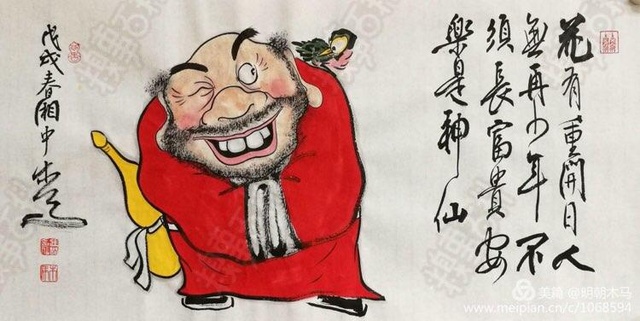 花有重開日人
無再少年不
須長富貴安
樂是神仙
戊戌春湘中
美篇 @明朝木马
www.meipian.cn/c/1068594